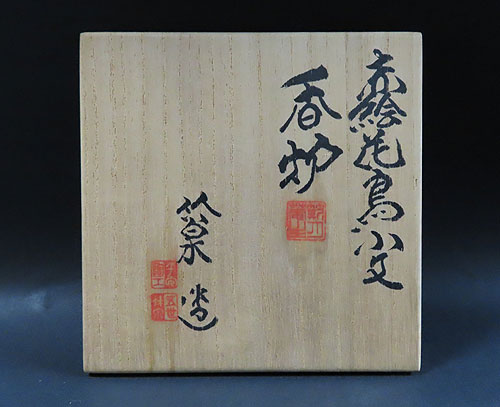 赤絵花鳥小文
香炉
竹泉造